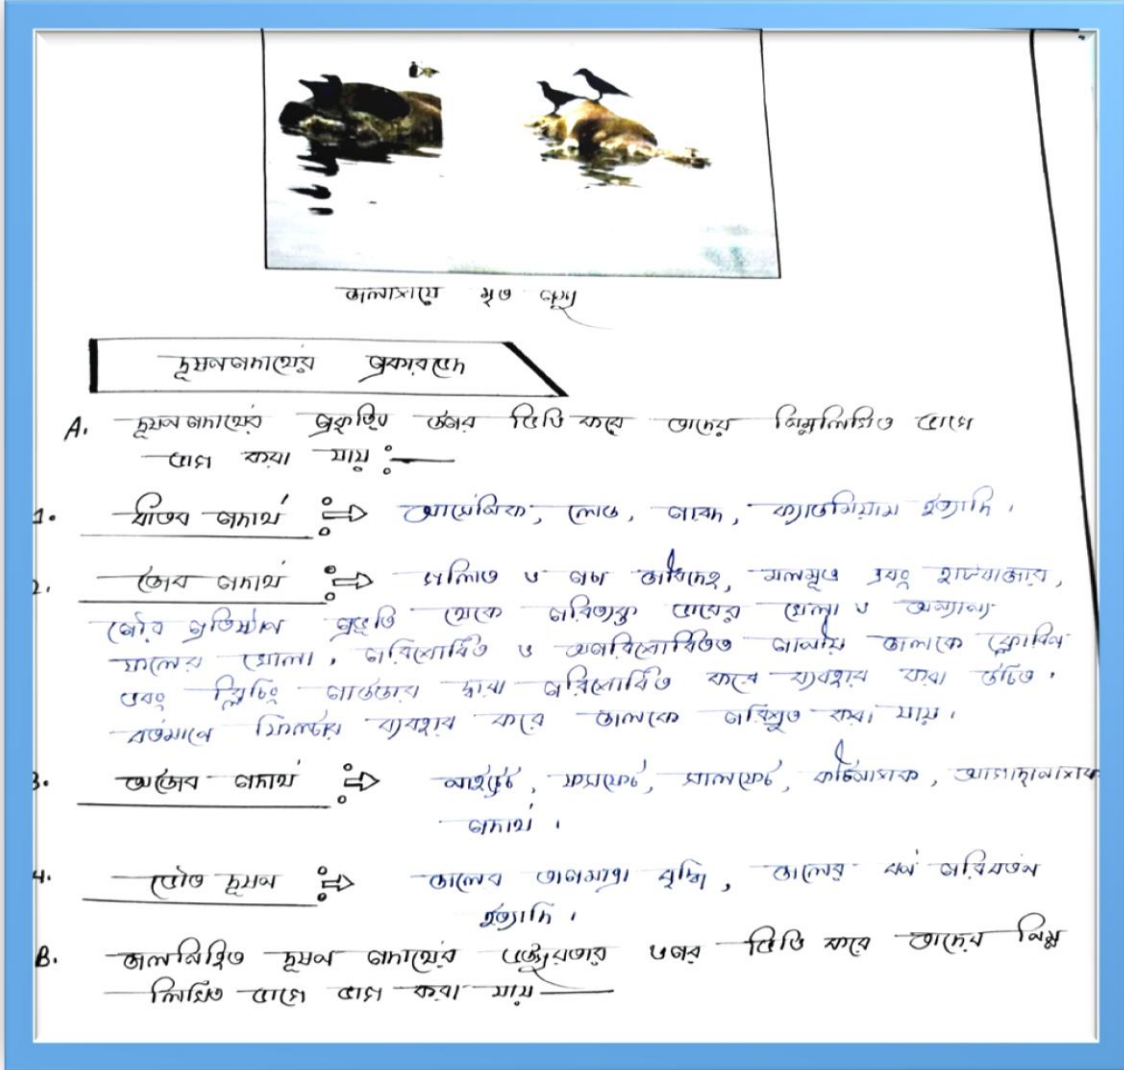 জলাশয়ে মৃত পশু
দূষণপদার্থের প্রকারভেদ
A. দূষণ পদার্থের প্রকৃতির উপর ভিত্তি করে তাদের নিম্নলিখিত ভাগে
ভাগ করা যায় :—
1. ধাতব পদার্থ ⇒ আর্সেনিক, লেড, পারদ, ক্যাডমিয়াম ইত্যাদি।
2. জৈব পদার্থ ⇒ গলিত ও পচা জীবদেহ, মলমূত্র এবং হাটবাজার,
পৌর প্রতিষ্ঠান প্রভৃতি থেকে পরিত্যক্ত ডাবের খোলা ও অন্যান্য
ফলের খোলা। পরিশোধিত ও অপরিশোধিত পানীয় জলকে ক্লোরিন
এবং ব্লিচিং পাউডার দ্বারা পরিশোধিত করে ব্যবহার করা উচিত।
বর্তমানে ফিল্টার ব্যবহার করে জলকে পরিশ্রুত করা যায়।
3. অজৈব পদার্থ ⇒ নাইট্রেট, ফসফেট, সালফেট, কীটনাশক, আগাছানাশক
পদার্থ।
4. ভৌত দূষণ ⇒ জলের তাপমাত্রা বৃদ্ধি, জলের বর্ণ পরিবর্তন
ইত্যাদি।
B. জলনিহিত দূষণ পদার্থের উপর ভিত্তি করে তাদের নিম্ন
লিখিত ভাগে ভাগ করা যায় —